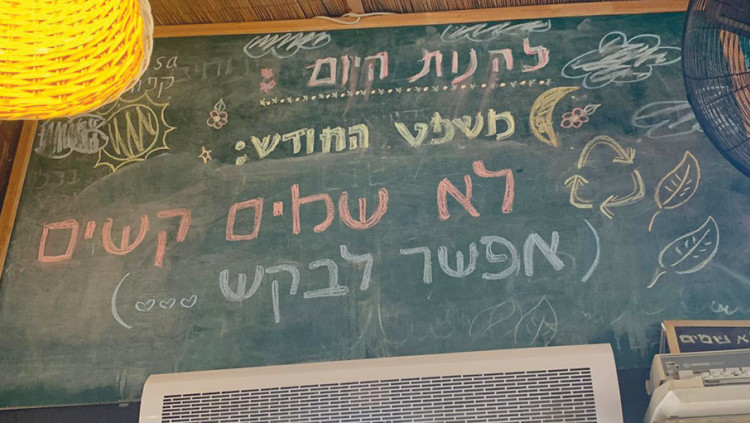 להנות היום
משפט החודש:
לא שמים קשים
(אפשר לבקש ...)
א שמים